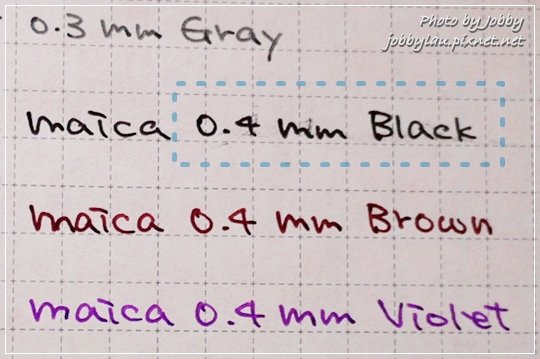 Photo by Jobby
jobbylau.pixnet.net
0.3 mm Gray
maica 0.4 mm Black
maica 0.4 mm Brown
maica 0.4 mm Violet